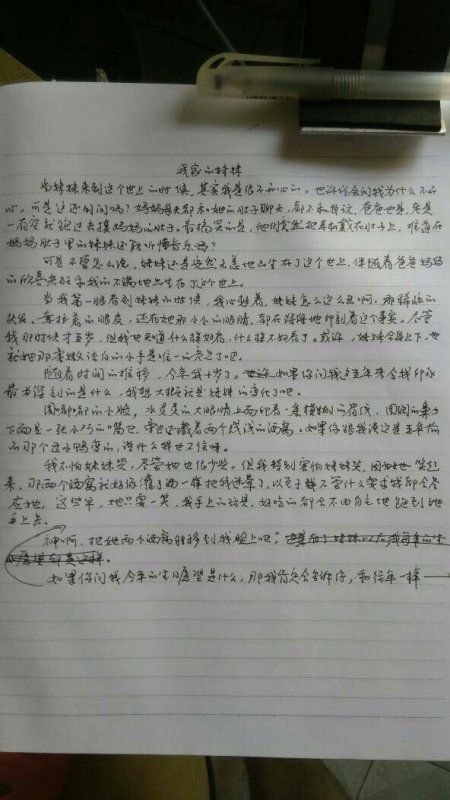 我家的妹妹
当妹妹来到这个世上的时候,其实我是很不开心的。也许你会问我为什么不开
心,可是这还用问吗?妈妈每天都和她的肚子聊天,都不和我说,爸爸也是,老是
一有空就跑过去摸妈妈的肚子。最搞笑的是,他们竟然把耳机戴在肚子上,难道在
妈妈肚子里的妹妹还能听懂音乐吗?
可是不管怎么说,妹妹还是安然无恙地出生在了这个世上,伴随着爸爸妈妈
的欣喜和我的不满地出生在了这个世上。
当我第一眼看到妹妹的时候,我心想着,妹妹怎么这么丑啊,那稀疏的
头发,耷拉着的眼皮,还有她那小小的眼睛,都在深深地印刻着这个事实。尽管
我那时候才五岁,但我也知道什么样好看,什么样不好看了。或许,妹妹全身上下,也
就她那李嫩洁白的小手是唯一的亮点了吧。
随着时间的推移,今年我十岁了。如果你问我这五年来令我印象
最为深刻的是什么,我想大概就是妹妹的变化了吧。
圆嘟嘟的小脸,水灵灵的大眼睛上面印着一条模糊的眉线,圆润的鼻子
下面是一张小巧的嘴巴,旁边还藏着两个浅浅的酒窝。如果你跟我说这是五年前
的那个丑小鸭变的,说什么我也不信呀。
我不怕妹妹哭,尽管她也很少哭。但我特别害怕妹妹笑,因为她一笑起
来,那两个酒窝就好像灌了酒一样把我迷晕了,以至于无论什么要求我都会答
应她,这些年,她只要一笑,我手上的玩具,好吃的都会不由自主地跑到她
手上去。
神啊,把她两个酒窝转移到我脸上吧!
如果你问我今年的生日愿望是什么,那我肯定会告诉你,和往年一样——